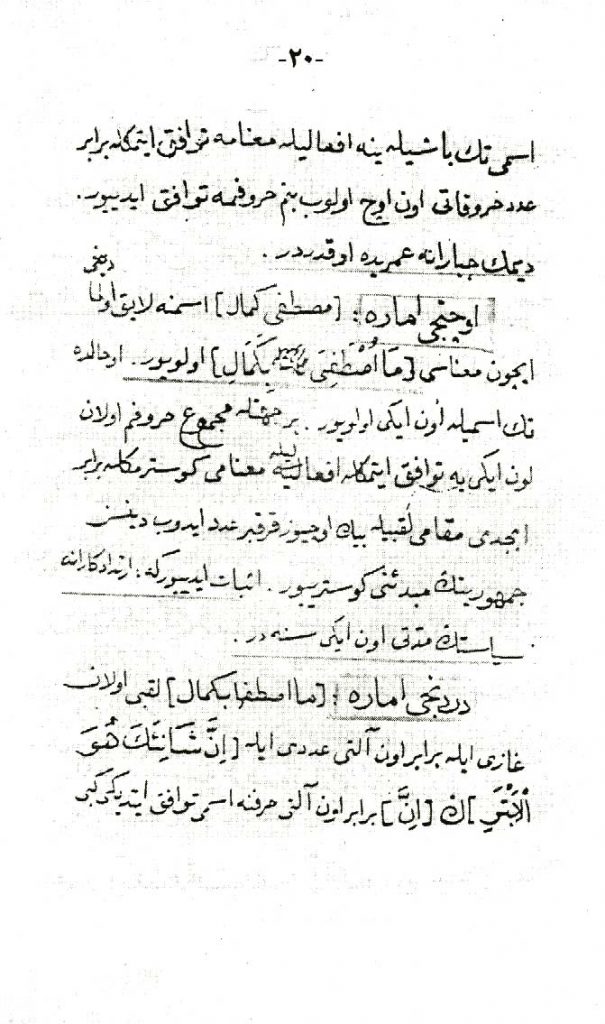 -٢٠-
اسمی تك باشیله ینه افعالیله معنامه توافق ایتمكله برابر
عدد حروفاتی اون اوچ اولوب بنم حروفمه توافق ایدییور.
دیمك جبارانه عمریده اوقدردر.
اوچنجی اماره: [مصطفی كمال] اسمنه لایق اولمادیغی
ایچون معناسی [مَا اُصْطُفِیَ بِكَمَالٍ] اولویور. اوحالده
تك اسمیله اون ایكی اولویور. بر جهتله مجموع حروفم اولان
اون ایكی یه توافق ایتمكله افعالیله معنامی كوسترمكله برابر
ابجدی مقامی لقبیله بیك اوچیوز قرق بر عدد ایدوب دینسز
جمهوریتك مبدئنی كوستریور. اثبات ایدییوركه: ارتدادكارانه
سیاستك مدتی اون ایكی سنه در.
دردنجی اماره: [ما اصطفا بكمال] لقبی اولان
غازی ایله برابر اون آلتی عددی ایله [اِنَّ شَانِئَكَ هُوَ
الْاَبْتَرُ] ك [اِنَّ] برابر اون آلتی حرفنه اسمی توافق ایتدیكی كبی